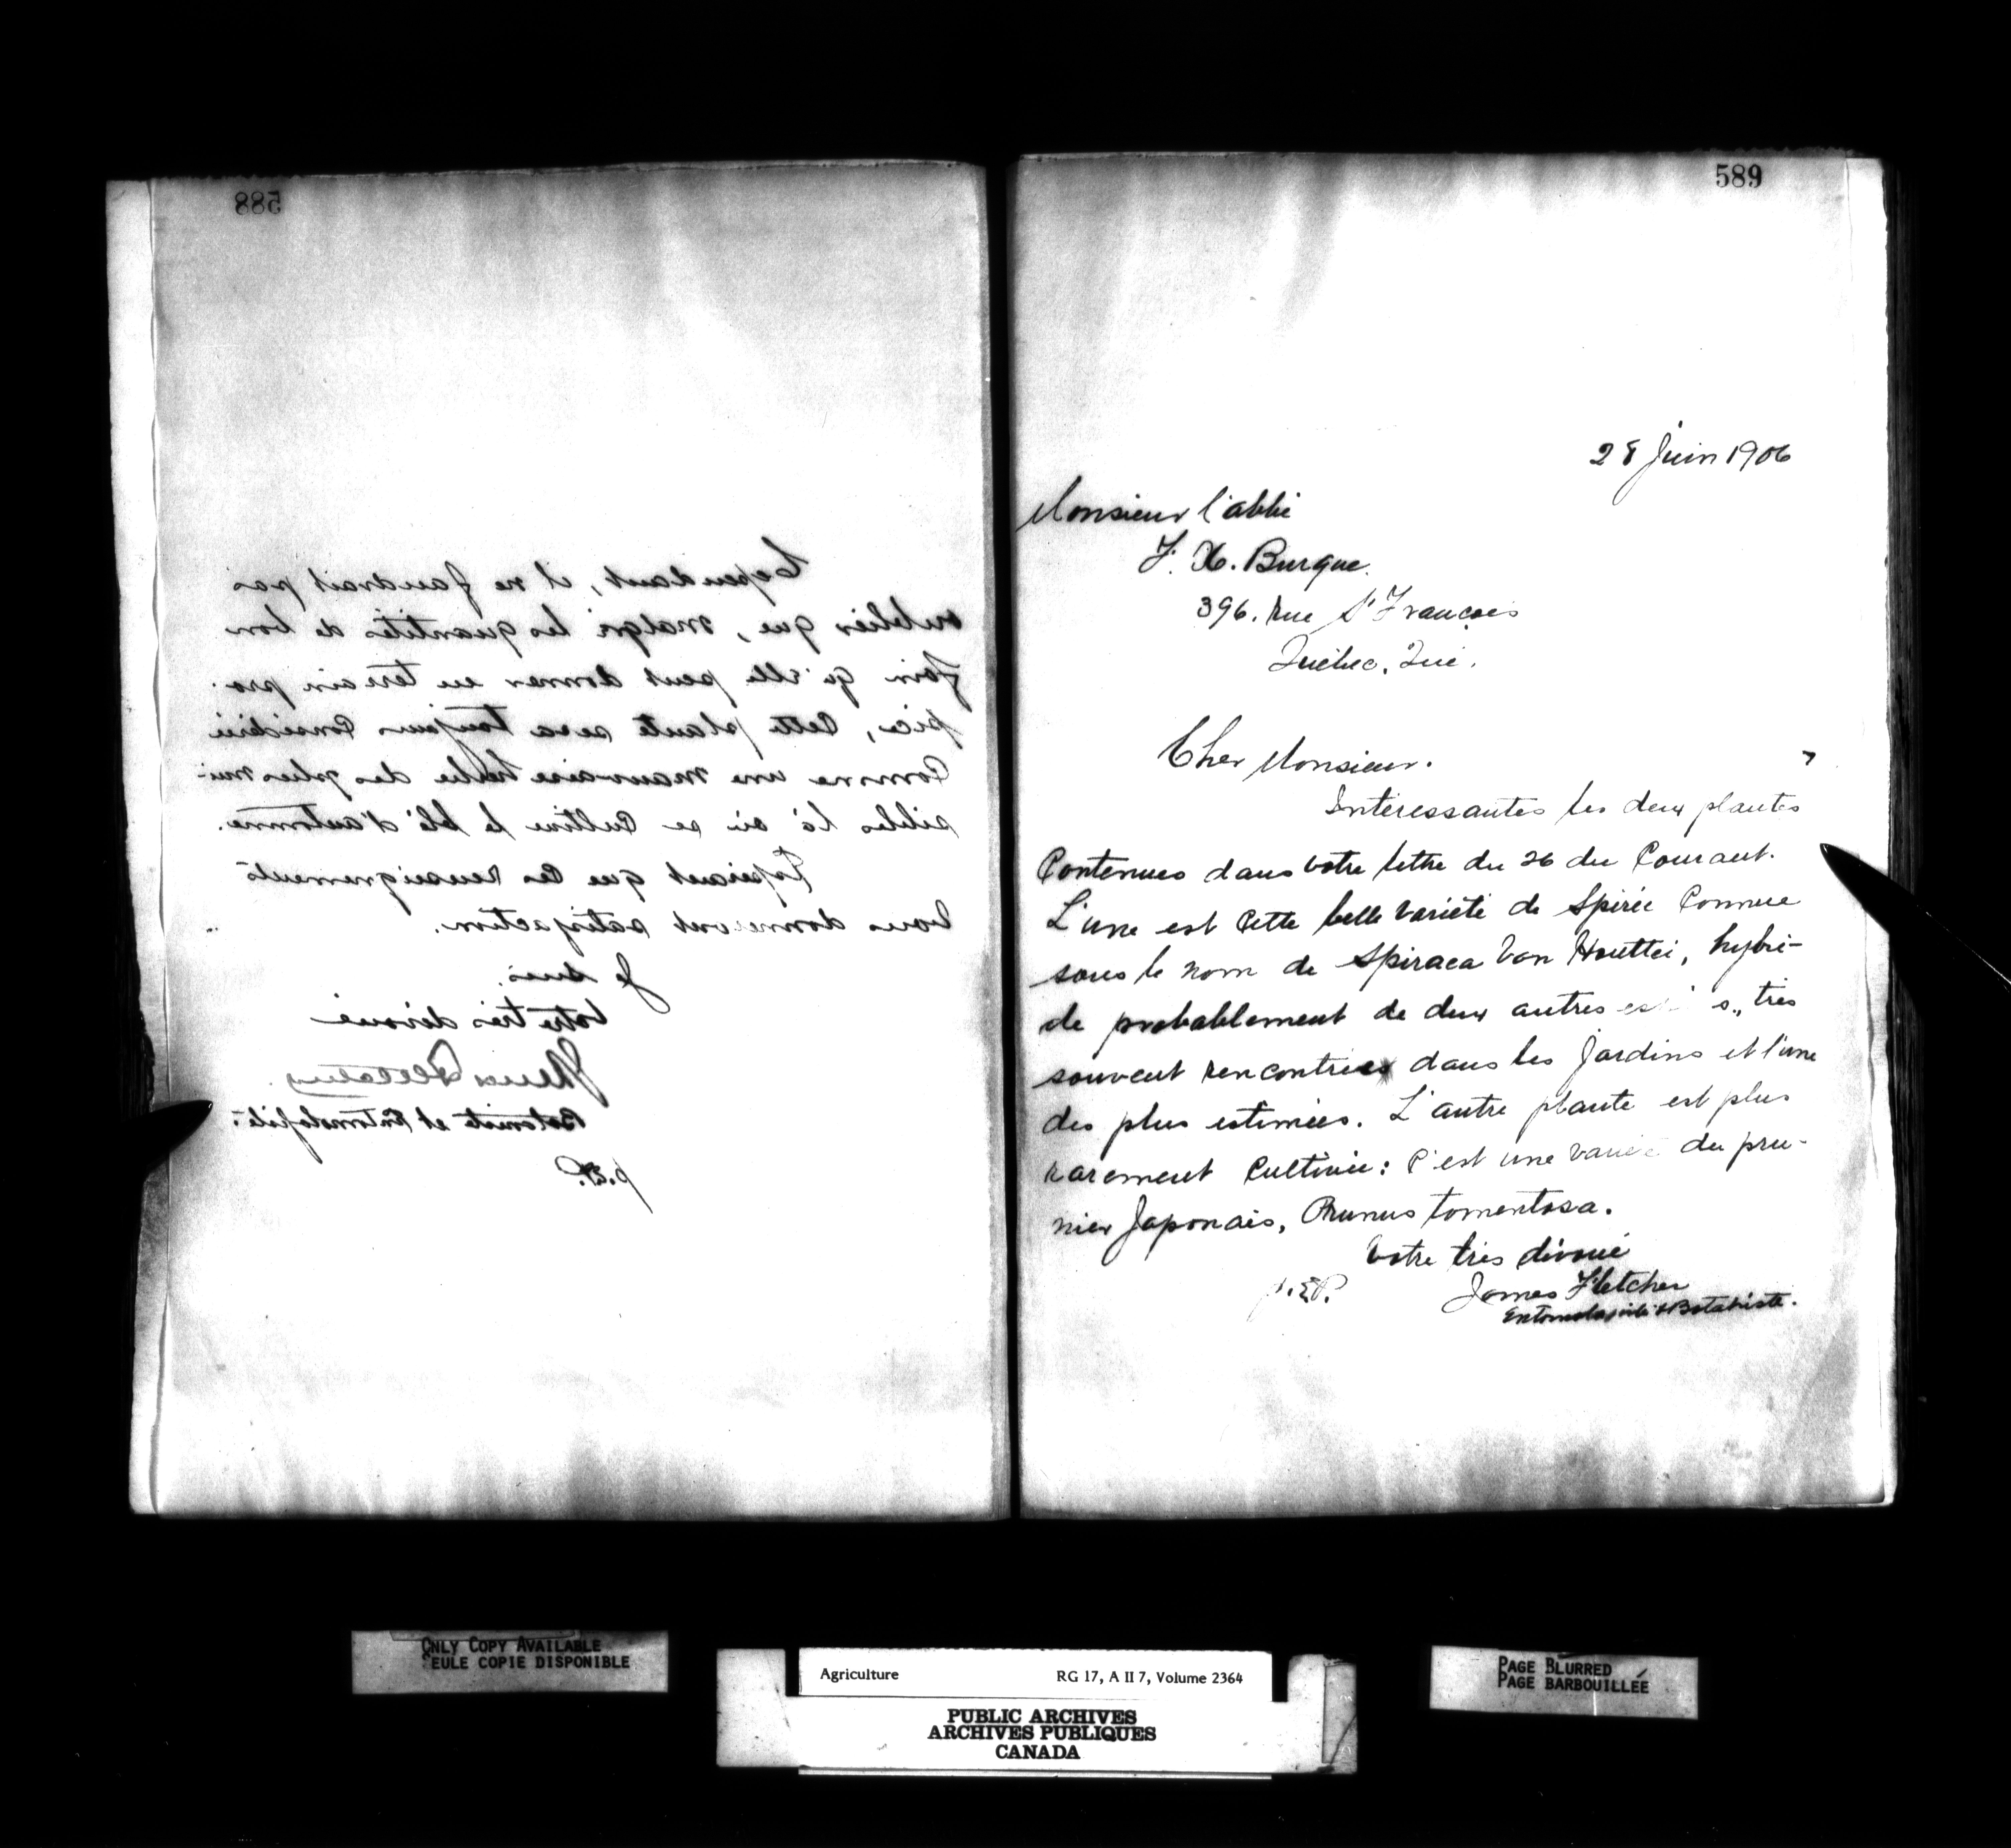 588
Cependant, il ne faudrait pas
oublier que, malgré les quantités de bon
foin qu'elle peut donner en terrain pro-
pice, cette plante sera toujours considérée
comme une mauvaise herbe des plus nui-
sibles là où se cultive le blé d'automne.
Espérant que ces renseignements
vous donneront satisfaction.
Je suis,
Votre très dévoué
James Fletcher
Botaniste et Entomologiste.
p. E.P.
589
28 Juin 1906
Monsieur l'abbé
F. X. Burque.
396. rue St François
Québec. Qué.
Cher Monsieur.
Intéressantes les deux plantes
contenues dans votre lettre du 26 du courant.
L'une est cette belle variété de Spirée connue
sous le nom de Spiraea Van Houttei, hybri-
de probablement de deux autres très
souvent rencontrées dans les jardins et l'une
des plus estimées. L'autre plante est plus
rarement cultivée: c'est une variété du pru-
nier Japonais, Prunus tomentosa.
Votre très dévoué
p. E.P. James Fletcher
Entomologiste & Botaniste.
ONLY COPY AVAILABLE
SEULE COPIE DISPONIBLE
Agriculture RG 17, A II 7, Volume 2364
PUBLIC ARCHIVES
ARCHIVES PUBLIQUES
CANADA
PAGE BLURRED
PAGE BARBOUILLÉE